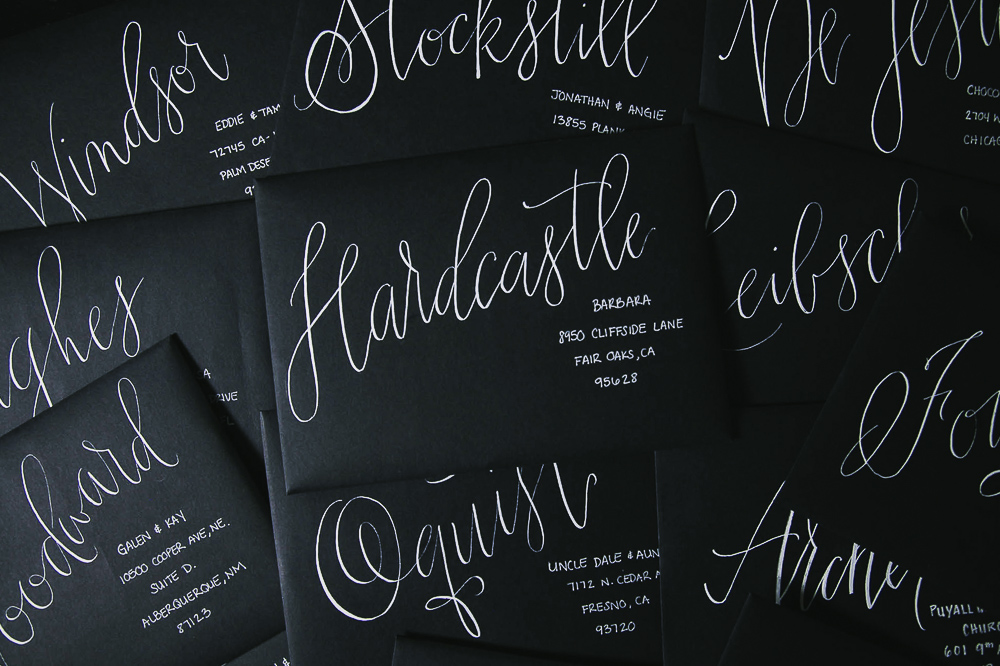 Windsor
EDDIE & TAM
72745 CA
PALM DESE
Stockstill
JONATHAN & ANGIE
13855 PLANK
CHOCO
2704 W
CHICAG
Hardcastle
BARBARA
8950 CLIFFSIDE LANE
FAIR OAKS, CA
95628
eibsch
ghes
IVE
oodward
GALEN & KAY
10500 COOPER AVE, NE.
SUITE D.
ALBERQUERQUE, NM
87123
Oquist
UNCLE DALE & AUN
7172 N. CEDAR A
FRESNO, CA
93720
Fo
PUYALL
CHURC
601 9th